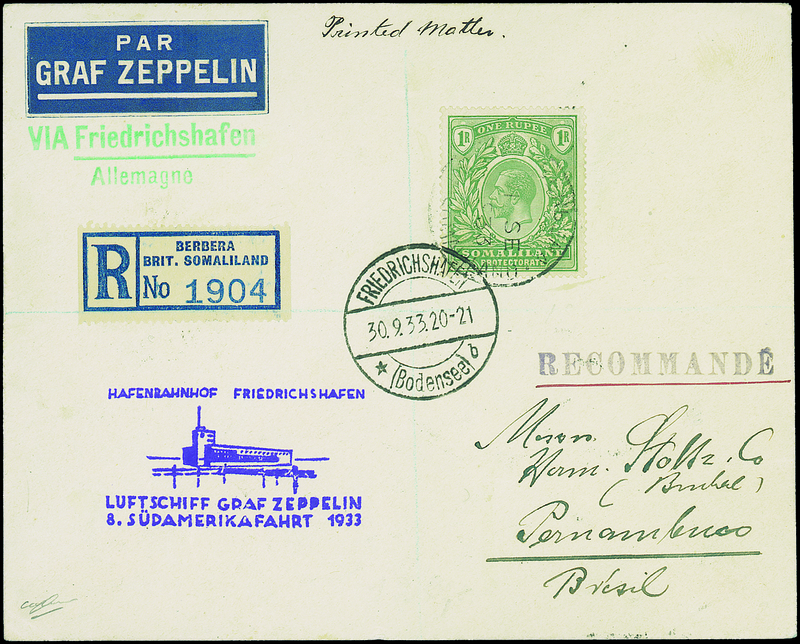 Printed Matter.
PAR
GRAF ZEPPELIN
VIA Friedrichshafen
Allemagne
1R ONE RUPEE 1R
SOMALILAND
PROTECTORATE
SE
33
R
BERBERA
BRIT. SOMALILAND
No 1904
FRIEDRICHSHAFEN
30.9.33.20-21
(Bodensee) b
RECOMMANDÉ
HAFENBAHNHOF FRIEDRICHSHAFEN
LUFTSCHIFF GRAF ZEPPELIN
8. SÜDAMERIKAFAHRT 1933
Messrs. Stoltz. Co
Herm.
Pernambuco
Brésil